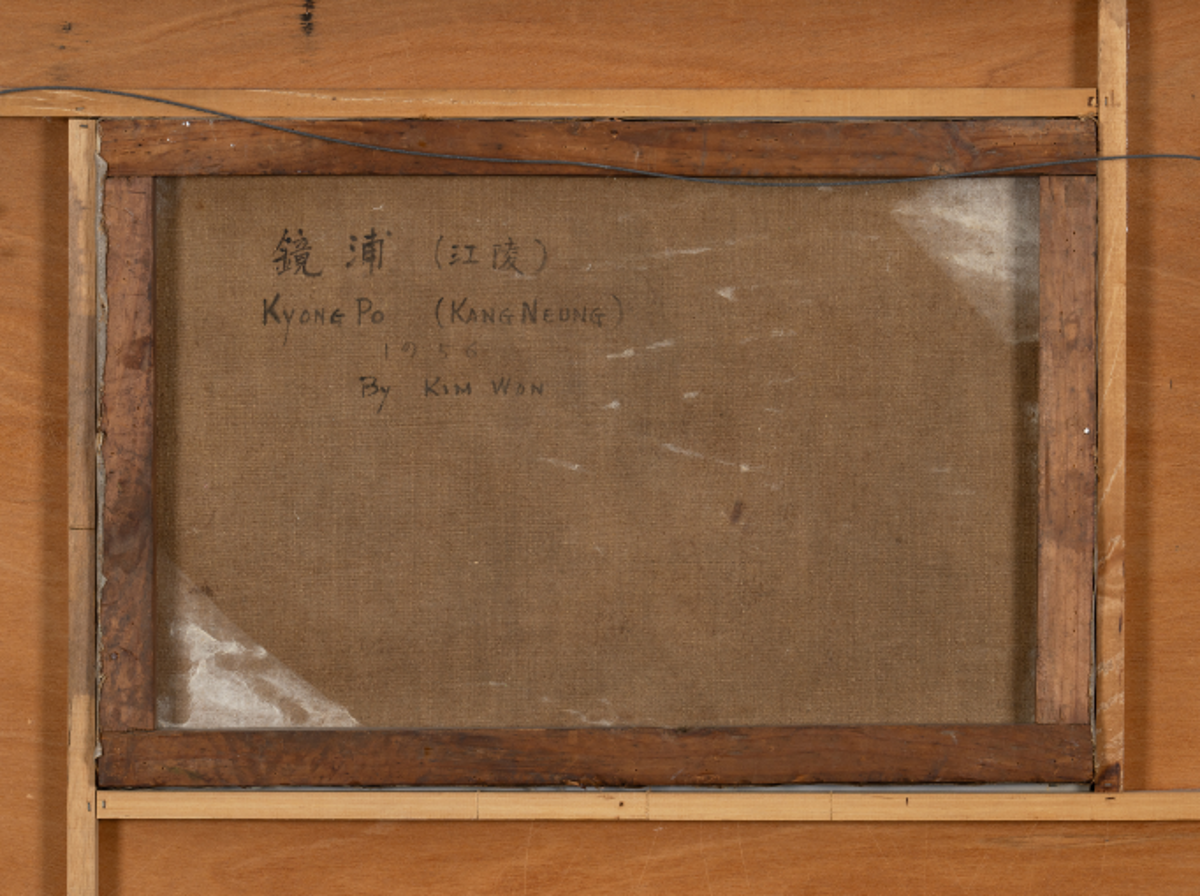 鏡 浦 (江陵)
KyongPo (KangNeung)
1956
By Kim Won